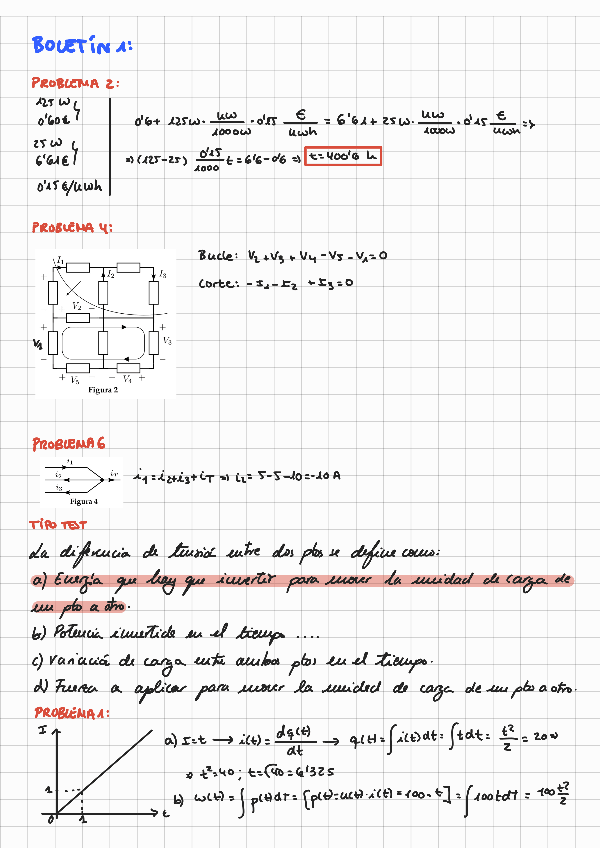 BOLETÍN 1:
PROBLEMA 2:
125 W
0'60 €
25 W
6'61 €
0'15 €/kWh
0'6 + 125W · kW/1000W · 0'15 €/kWh = 6'61 + 25W · kW/1000W · 0'15 €/kWh ⇒
⇒ (125-25) 0'15/1000 t = 6'6 - 0'6 ⇒ t = 400'6 h
PROBLEMA 4:
Bucle: V2 + V3 + V4 - V5 - V1 = 0
Corte: - I1 - I2 + I3 = 0
I1
I2
I3
+ V2 -
+ V1 -
+ V3 -
+ V5 - - V4 +
Figura 2
PROBLEMA 6
i1
i2
i3
iT
Figura 4
i1 = i2 + i3 + iT ⇒ i2 = 5-5-10 = -10 A
TIPO TEST
La diferencia de tensión entre dos ptos se define como:
a) Energía que hay que invertir para mover la unidad de carga de
un pto a otro.
b) Potencia invertida en el tiempo ....
c) Variació de carga entre ambos ptos en el tiempo.
d) Fuerza a aplicar para mover la unidad de carga de un pto a otro.
PROBLEMA 1:
I
1
0 1 t
a) I=t → i(t) = dq(t)/dt → q(t) = ∫i(t)dt = ∫tdt = t²/2 = 20 ⇒
⇒ t² = 40 ; t = √40 = 6'325
b) w(t) = ∫p(t)dt = [p(t) = u(t) · i(t) = 100 · t] = ∫100tdt = 100 t²/2